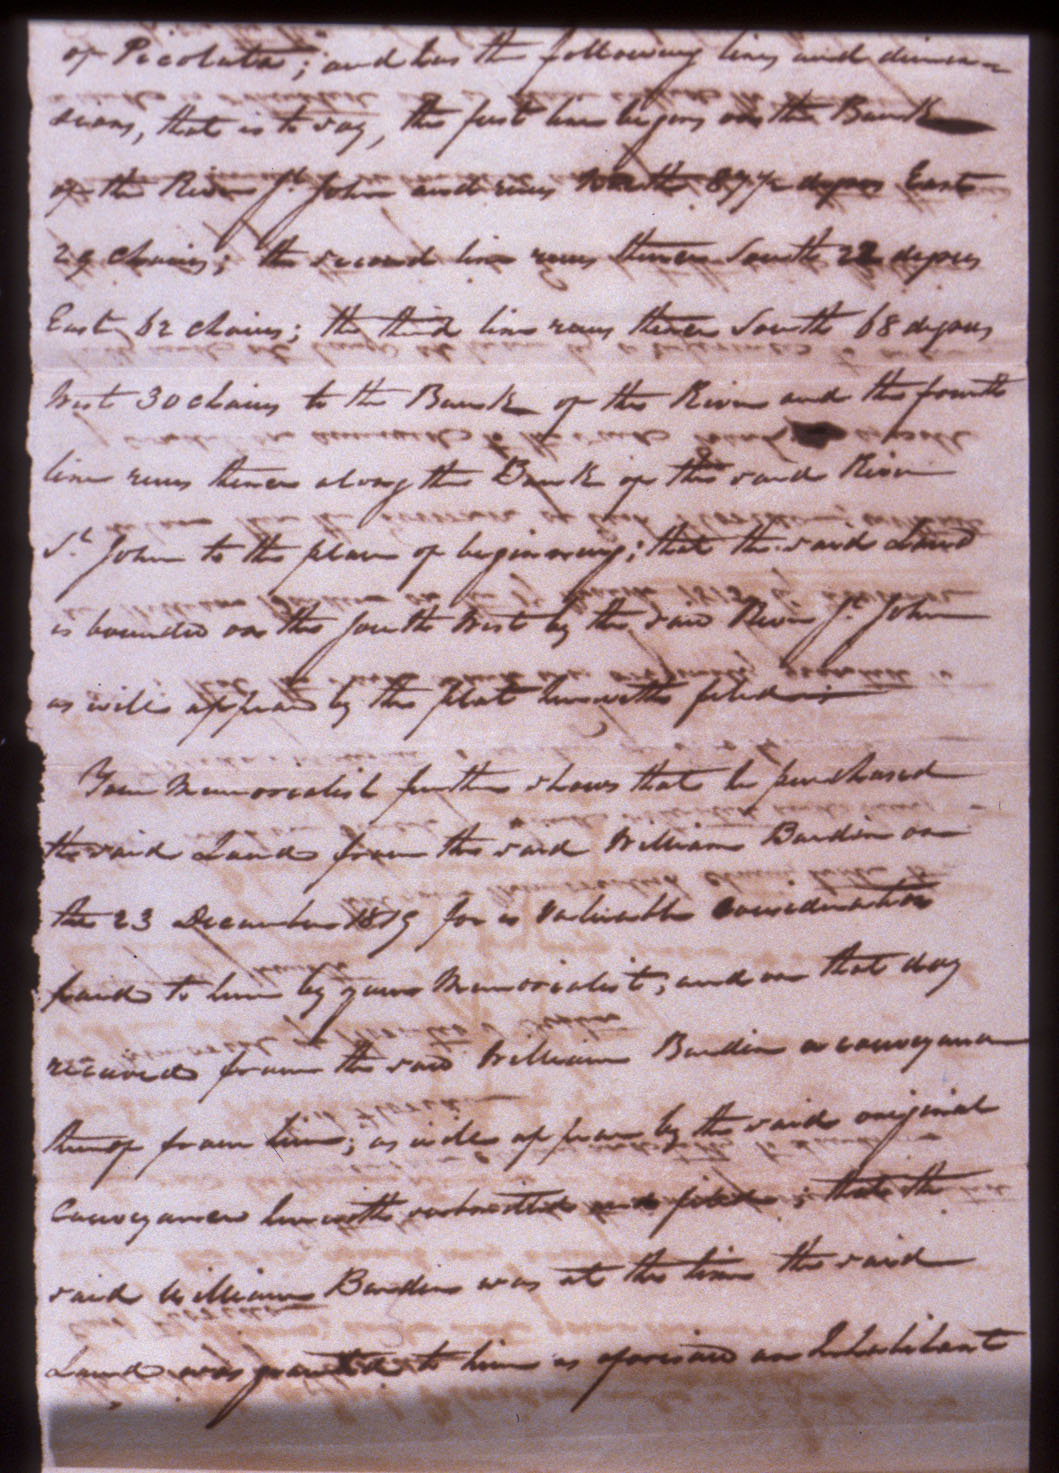 of Picolata; and has the following lines and dimen=
sions, that is to say, the first line begins on the Bank
of the River St. John and runs North 87½ degrees East
29 chains; the second line runs thence South 22 degrees
East 62 chains; the third line runs thence South 68 degrees
West 30 chains to the Bank of the River and the fourth
line runs thence along the Bank of the said River
St. John to the place of beginning; that the said Land
is bounded on the South West by the said River St. John
as will appear by the plat herewith filed
Your Memorialist further shows that he purchased
the said Land from the said William Bardin on
the 23 December 1819 for a valuable consideration
paid to him by your Memorialist; and on that day
received from the said William Bardin a conveyance
thereof from him; as will appear by the said original
Conveyance herewith submitted and filed; that the
said William Bardin was at the time the said
Land was granted to him as aforesaid an Inhabitant